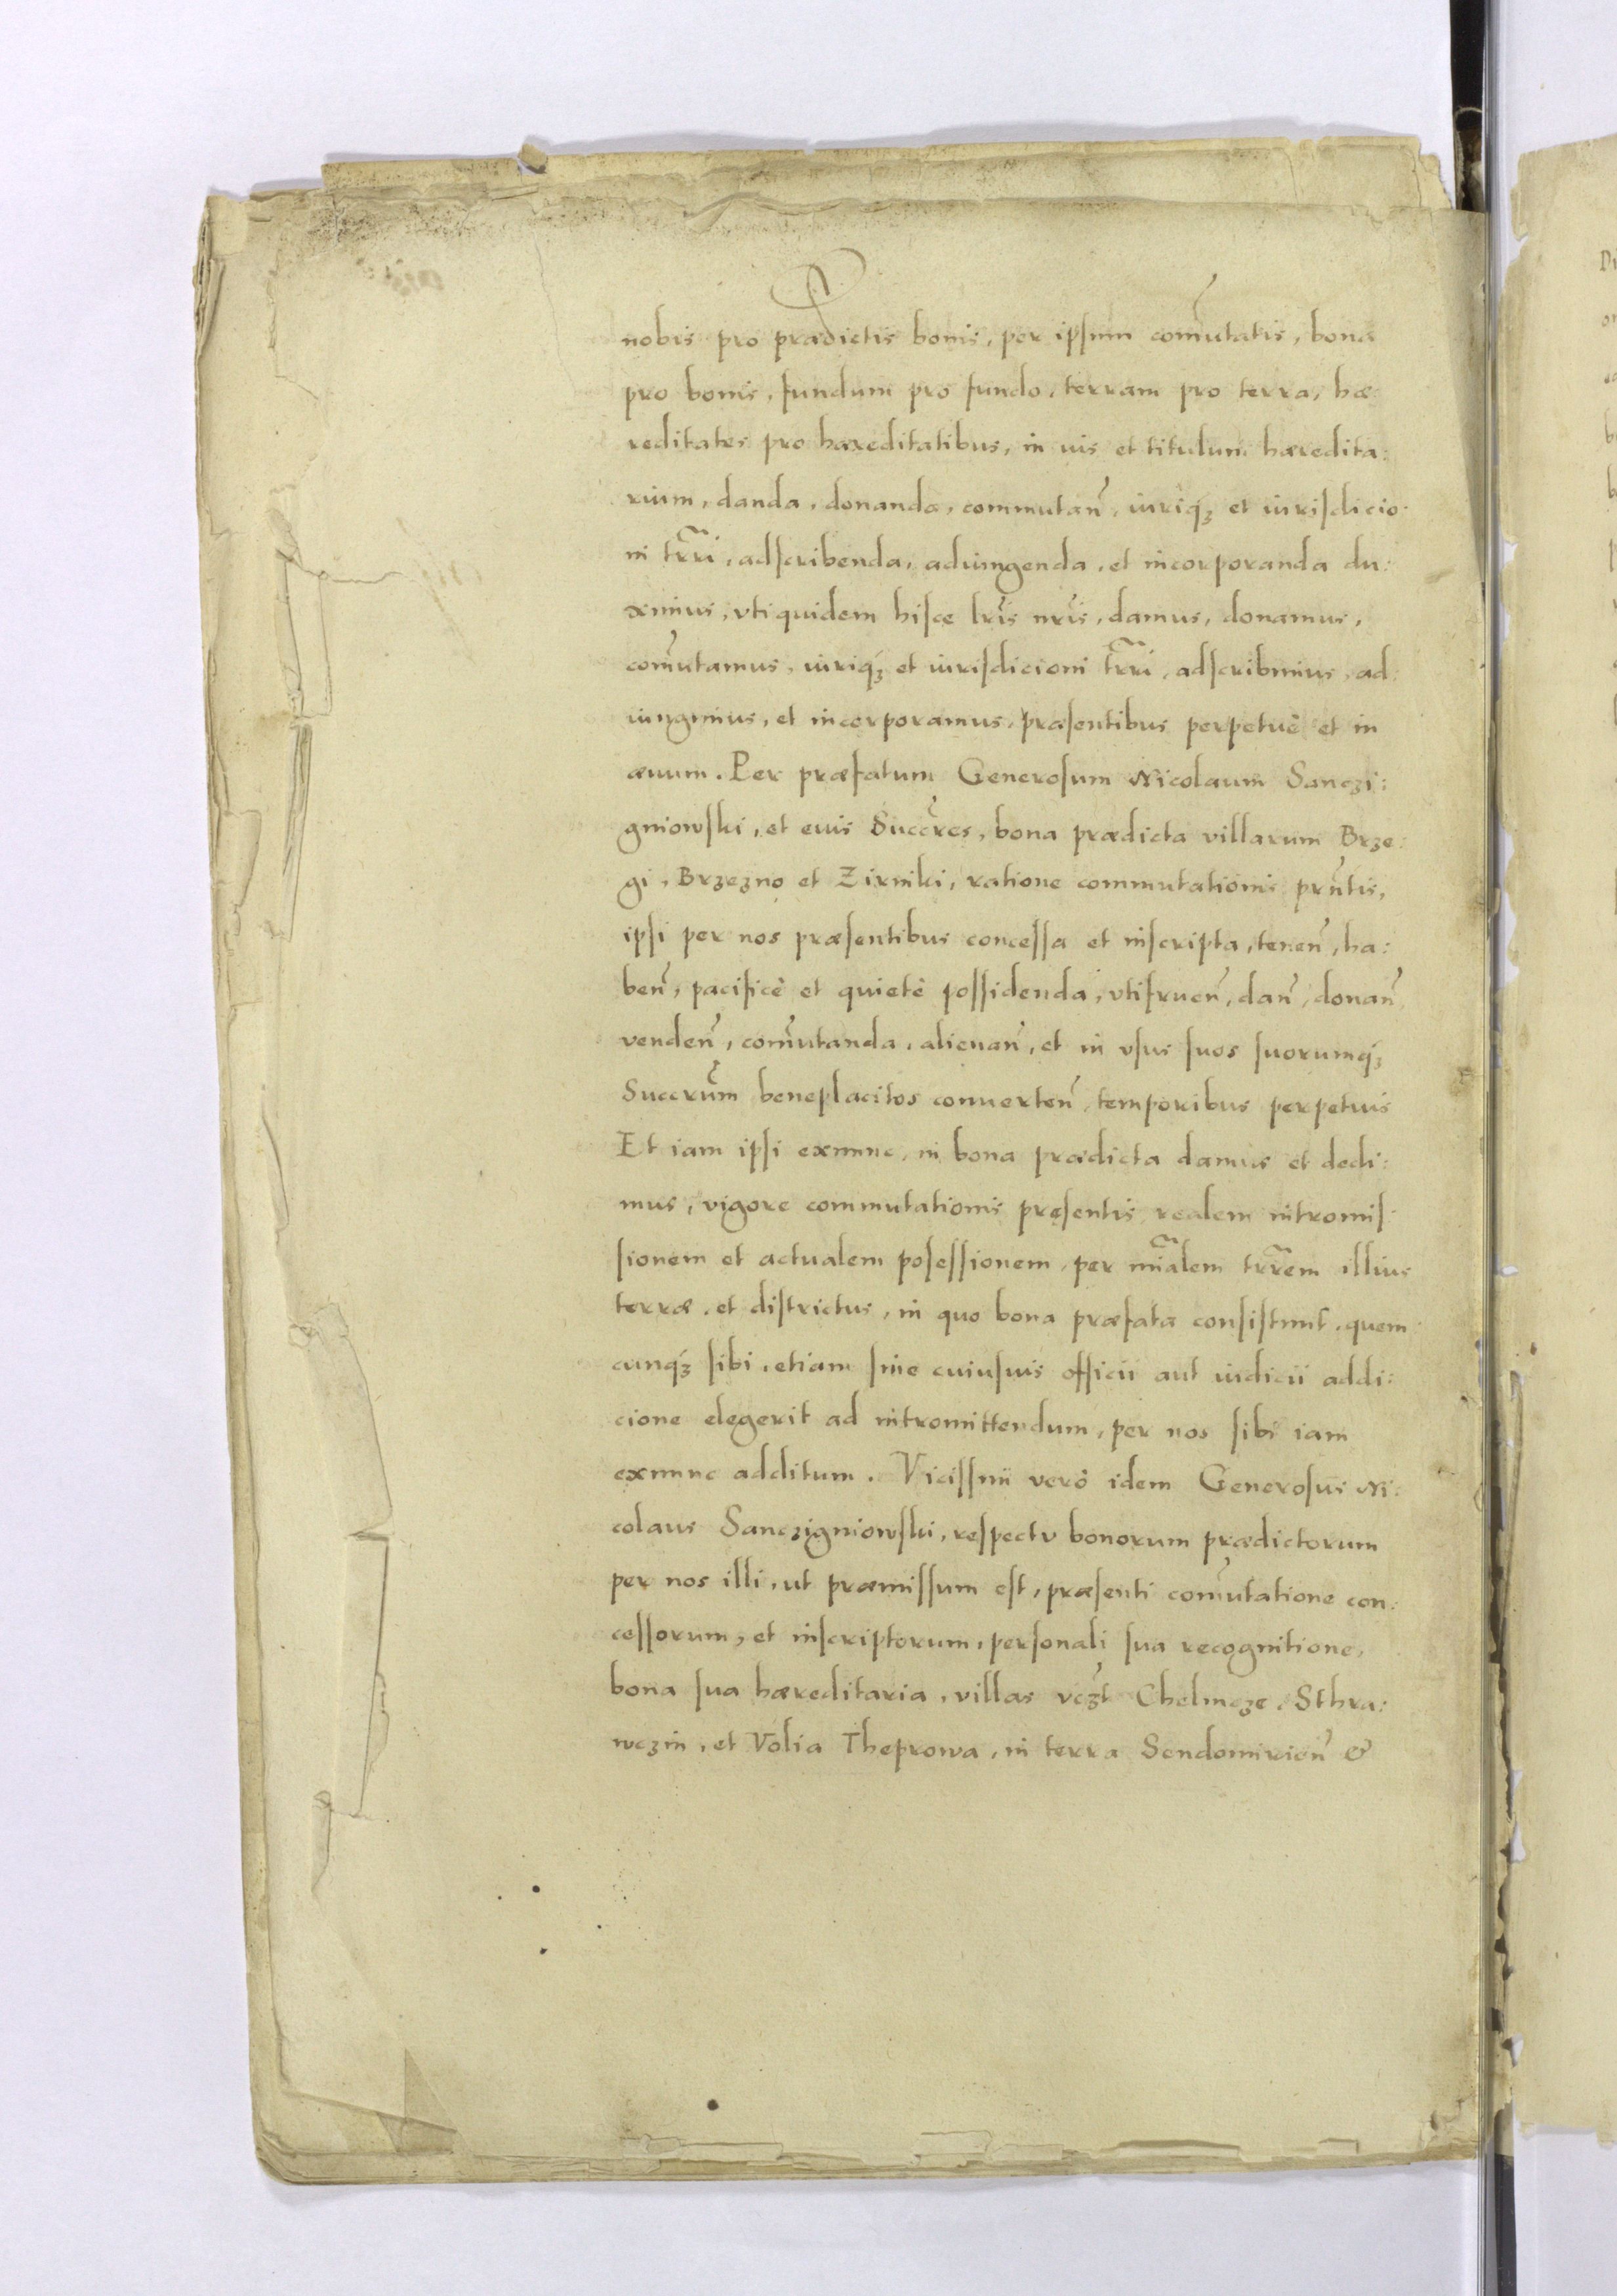 nobis pro prædictis bonis, per ipsum com̃utatis, bona
pro bonis, fundum pro fundo, terram pro terra, hæ
reditates pro hæreditatibus, in ius et titulum hæredita:
rium, danda, donanda, commutan̄, iuriqꝫ et iurisdicio:
ni tr̃ri, adscribenda, adiungenda, et incorporanda du:
ximus, vti quidem hisce lr̃is nr̃is, damus, donamus,
com̃utamus, iuriqꝫ et iurisdicioni tr̃ri, adscribimus, ad:
iungimus, et incorporamus, præsentibus perpetuè et in
æuum. Per præfatum Generosum Nicolaum Sanczi:
gniowski, et euis Succr̃es, bona prædicta villarum Brze:
gi, Brzezno et Zirniki, ratione commutationis prñtis,
ipsi per nos præsentibus concessa et inscripta, tenen̄, ha:
ben̄, pacificè et quietè possidenda, vtifruen̄, dan̄, donan̄
venden̄, com̃utanda, alienan̄, et in vsus suos suorumqꝫ
Succrũm beneplacitos conuerten̄, temporibus perpetuis
Et iam ipsi exnunc, in bona prædicta damus et dedi:
mus, vigore commutationis presentis, realem intromis
sionem et actualem posessionem, per mĩalem tr̃rem illius
terræ, et districtus, in quo bona præfata consistunt, quem
cunqꝫ sibi, etiam sine cuiusuis officii aut iudicii addi:
cione elegerit ad intromittendum, per nos sibi iam
exnunc additum. Vicissim verò idem Generosus Ni:
colaus Sanczigniowski, respectu bonorum prædictorum
per nos illi, ut præmissum est, præsenti com̃utatione con:
cessorum, et inscriptorum, personali sua recognitione,
bona sua hæreditaria, villas vcꝫt Chelmcze, Sthra:
wczin, et Volia Theprowa, in terra Sendomirien̄ &